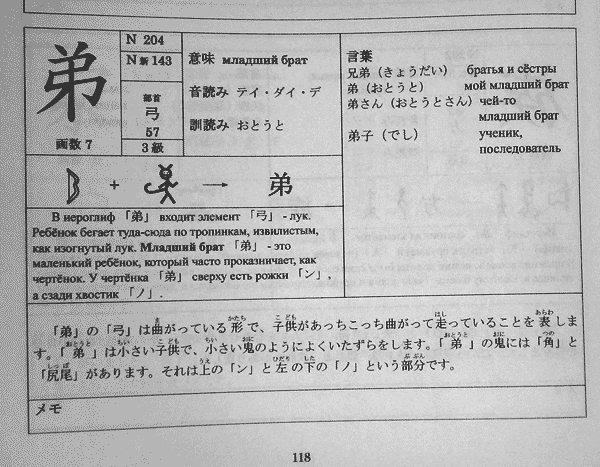 弟
画数 7
N 204
N新143
部首
弓
57
3 級
意味 младший брат
音読み テイ・ダイ・デ
訓読み おとうと
言葉
兄弟（きょうだい） братья и сёстры
弟（おとうと） мой младший брат
弟さん（おとうとさん） чей-то
младший брат
弟子（でし） ученик,
последователь
+ → 弟
В иероглиф 「弟」 входит элемент 「弓」 - лук.
Ребёнок бегает туда-сюда по тропинкам, извилистым,
как изогнутый лук. Младший брат 「弟」 - это
маленький ребёнок, который часто проказничает, как
чертёнок. У чертёнка 「弟」 сверху есть рожки 「ン」,
а сзади хвостик 「ノ」.
「弟」の「弓」は曲がっている形で、子供があっちこっち曲がって走っていることを表しま
す。「弟」は小さい子供で、小さい鬼のようによくいたずらをします。「弟」の鬼には「角」と
「尻尾」があります。それは上の「ン」と左の下の「ノ」という部分です。
メモ
118